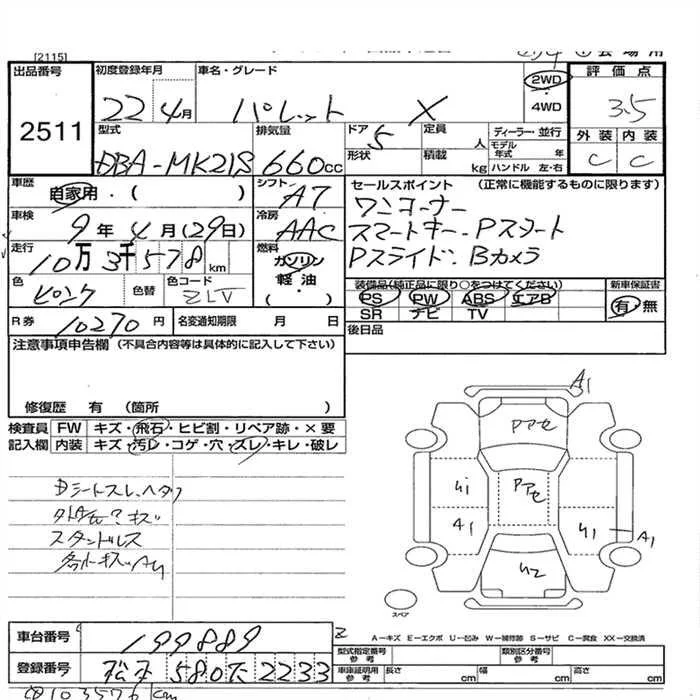 [2115]
出品番号
2511
初度登録年月
22年4月
車名・グレード
パレット X
2WD
・
4WD
評価点
3.5
外装 内装
C C
型式
DBA-MK21S
排気量
660cc
ドア 5
形状
定員 人
積載 kg
ディーラー・並行
モデル年式 年
ハンドル 左・右
車歴
自家用・( )
シフト
A7
車検
9年4月(29日)
冷房
AAC
走行
10万3千578km
燃料
ガソリン
軽油
( ・ )
色
ピンク
色替
色コード
ZLV
セールスポイント (正常に機能するものに限ります)
ワンオーナー
スマートキー、Pスタート
Pスライド、Bカメラ
装備品(純正品に限り○をつけてください)
PS PW ABS エアB
SR ナビ TV
新車保証書
有・無
R券 10270円
名変通知期限 月 日
後日品
注意事項申告欄 (不具合内容等は具体的に記入して下さい)
修復歴 有 (箇所 )
検査員記入欄
FW キズ・飛石・ヒビ割・リペア跡・×要
内装 キズ・汚レ・コゲ・穴・スレ・キレ・破レ
Dシートスレ、ヘタリ
スタンドレス
A1
Pアセ
Pアセ
A1
A1
スペア
A-キズ E-エクボ U-凹み W-補修跡 S-サビ C-腐食 XX-交換済
車台番号
199889
登録番号
松本 580 て 2233
型式指定番号
参考
類別区分番号
参考
車庫証明用
参考
長さ cm
幅 cm
高さ cm